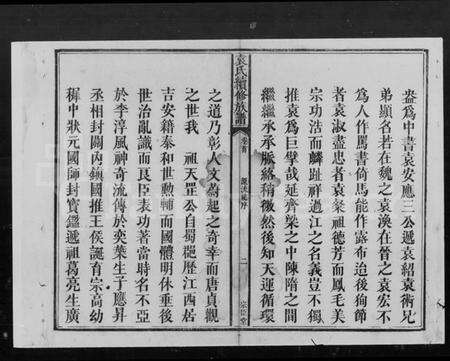 盎為中書袁安應三公遞袁紹袁術兄
弟顯名若在魏之袁渙在晉之袁宏不
為人作馬書倚馬能作露布迨後徇節
者袁淑盡忠者袁粲祖德芳而鳳毛美
宗功浩而麟趾祥過江之名義豈不獨
推袁為巨擘哉延齊梁之中陳隋之間
繼繼承承脈絡稍微然後知天運循環
袁氏續修族譜
卷首
源流總序
二
之道乃彰人文蔚起之奇幸而唐貞觀
之世我 祖天罡公自蜀歷歷江西居
吉安籍泰和世勲輔而國體明休垂後
世治亂識而良臣表功著當時名不亞
於李淳風神奇流傳於奕葉生子應昇
丞相封關內鎮國推王侯誕育宗高幼
穉中狀元國師封寶鑑遞祖葛亮生廣